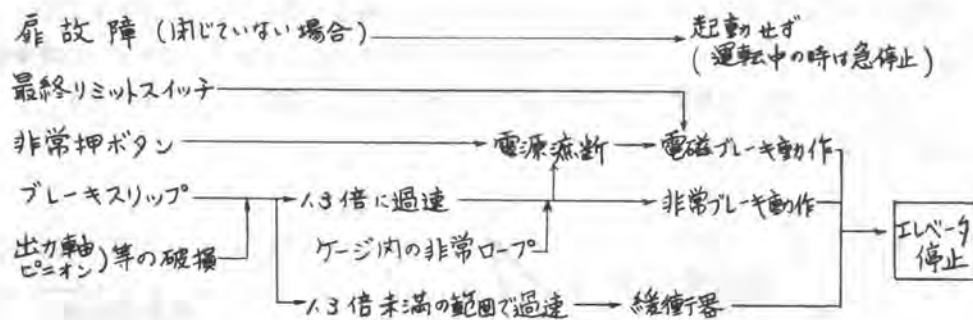 扉故障(閉じていない場合)
起動せず
(運転中の時は急停止)
最終リミットスイッチ
非常押ボタン
電源遮断
電磁ブレーキ動作
ブレーキスリップ
1.3倍に過速
非常ブレーキ動作
出力軸
ピニオン)等の破損
ケージ内の非常ロープ
エレベータ
停止
1.3倍未満の範囲で過速
緩衝器